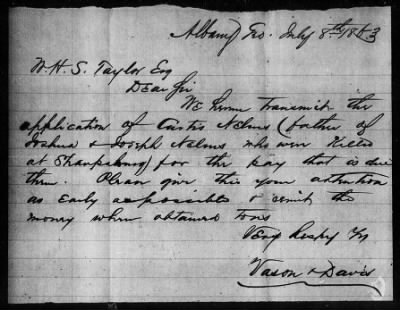 Albany Geo. July 8th 1863
W. H. S. Taylor Esq
Dear Sir
We herein transmit the
application of Curtis Nelms (father of
Joshua & Joseph Nelms who were killed
at Sharpsburg) for the pay that is due
them. Please give this your attention
as early as possible & remit the
money when obtained to us
Very Respy Yrs
Vason & Davis